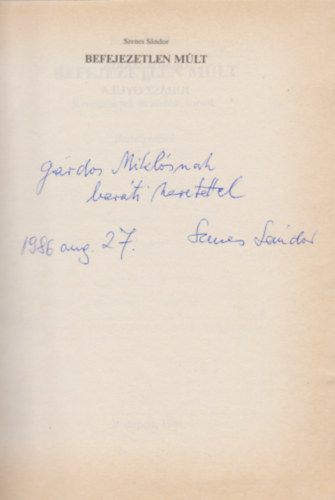 Szenes Sándor
BEFEJEZETLEN MÚLT
Gárdos Miklósnak
baráti szeretettel
1986 aug. 27. Szenes Sándor